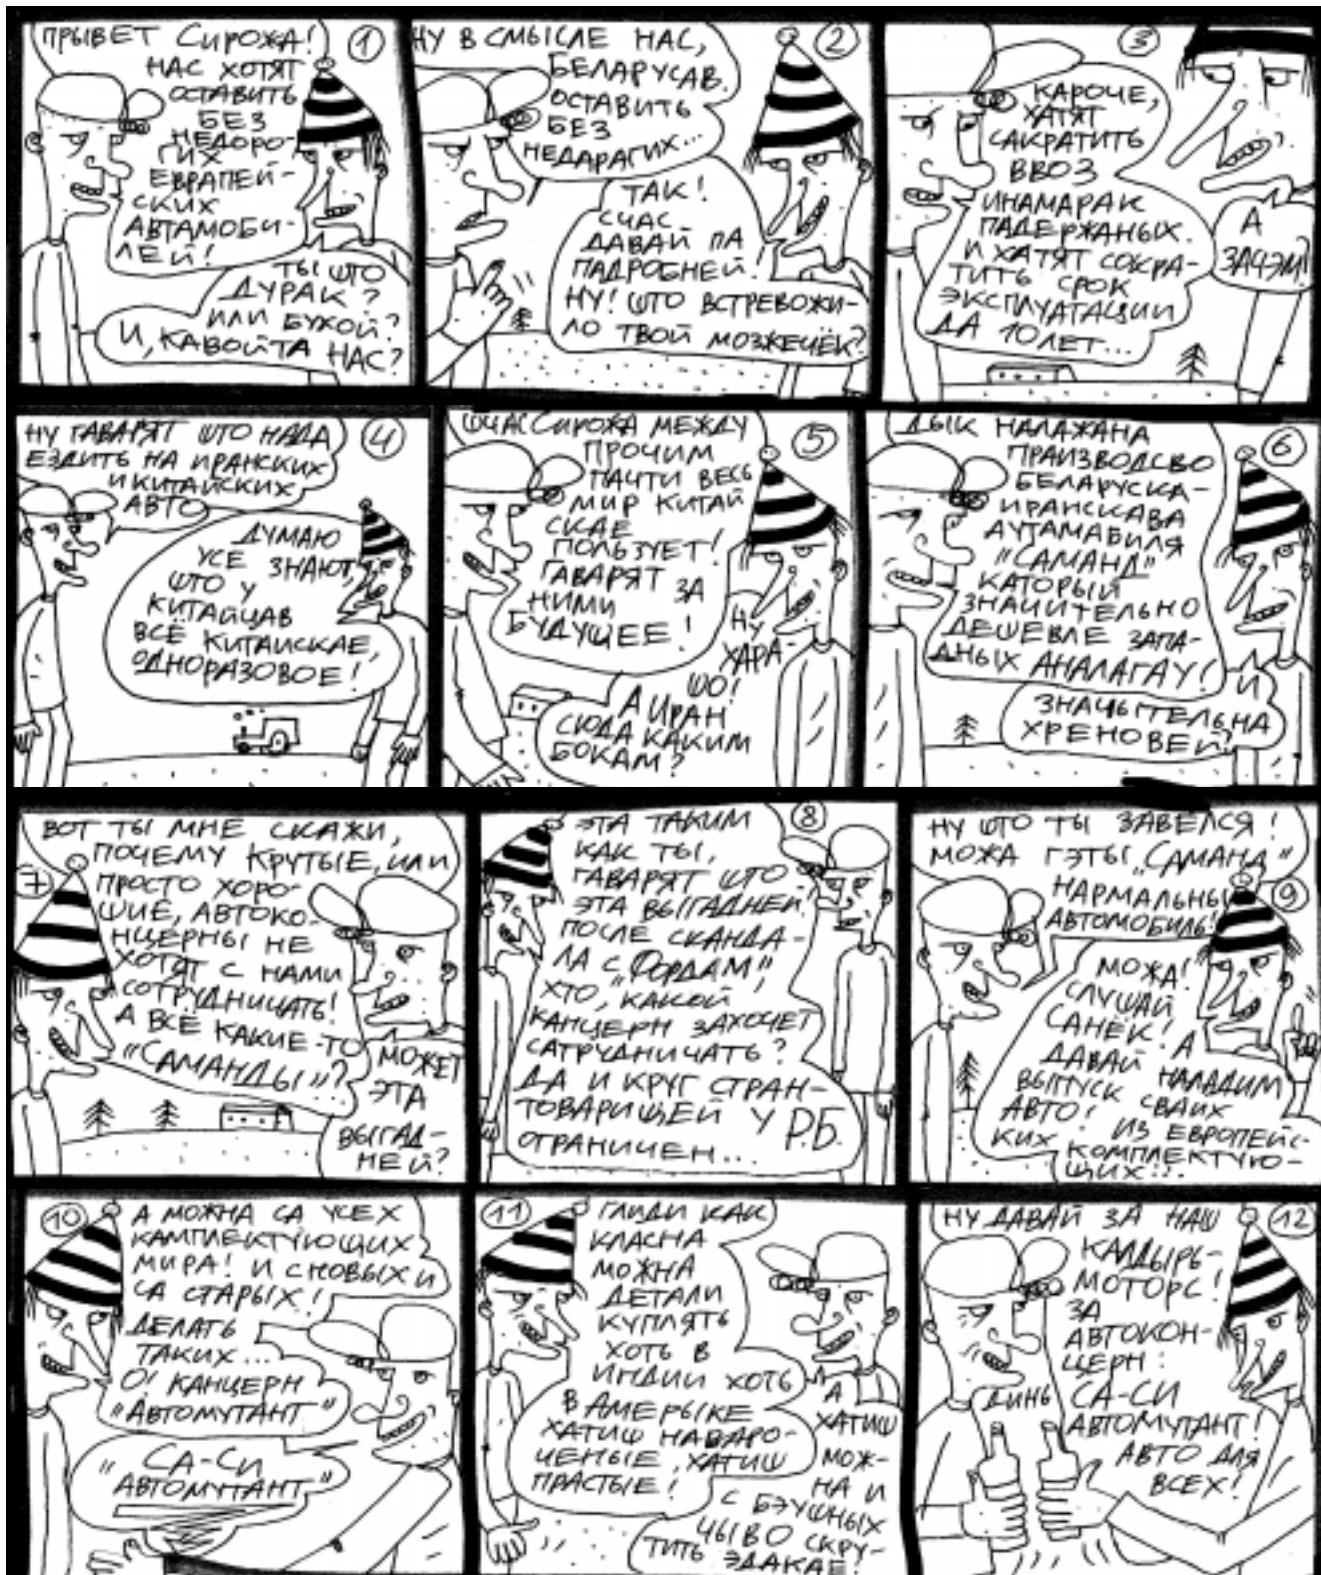 ПРЫВЕТ СИРОЖА!
НАС ХОТЯТ
ОСТАВИТЬ
БЕЗ
НЕДОРО-
ГИХ
ЕВРАПЕЙ-
СКИХ
АВТАМОБИ-
ЛЕЙ!
1
ТЫ ШТО
ДУРАК?
ИЛИ БУХОЙ?
И, КАВОЙТА НАС?
НУ В СМЫСЛЕ НАС,
БЕЛАРУСАВ.
ОСТАВИТЬ
БЕЗ
НЕДАРАГИХ...
2
ТАК!
СЧАС
ДАВАЙ ПА
ПАДРОБНЕЙ!
НУ! ШТО ВСТРЕВОЖИ-
ЛО ТВОЙ МОЗЖЕЧЁК?
3
КАРОЧЕ,
ХАТЯТ
САКРАТИТЬ
ВВОЗ
ИНАМАРАК
ПАДЕРЖАНЫХ.
И ХАТЯТ СОКРА-
ТИТЬ СРОК
ЭКСПЛУАТАЦИИ
ДА 10 ЛЕТ...
А
ЗАЧЭМ?
НУ ГАВАРЯТ ШТО НАДА
ЕЗДИТЬ НА ИРАНСКИХ
И КИТАЙСКИХ
АВТО
4
ДУМАЮ
УСЕ ЗНАЮТ,
ШТО У
КИТАЙЦАВ
ВСЁ КИТАЙСКАЕ,
ОДНОРАЗОВОЕ!
ШЧАС СИРОЖА МЕЖДУ
ПРОЧИМ
ПАЧТИ ВЕСЬ
МИР КИТАЙ
СКАЕ
ПОЛЬЗУЕТ!
ГАВАРЯТ ЗА
НИМИ
БУДУЩЕЕ!
5
НУ
ХАРА-
ШО!
А ИРАН
СЮДА КАКИМ
БОКАМ?
ДЫК НАЛАЖАНА
ПРАИЗВОДСВО
БЕЛАРУСКА-
ИРАНСКАВА
АУТАМАБИЛЯ
"САМАНД"
КАТОРЫЙ
ЗНАЧИТЕЛЬНО
ДЕШЕВЛЕ ЗАПА-
ДНЫХ АНАЛАГАУ!
6
И
ЗНАЧЫТЕЛЬНА
ХРЕНОВЕЙ?
ВОТ ТЫ МНЕ СКАЖИ,
ПОЧЕМУ КРУТЫЕ, ИЛИ
ПРОСТО ХОРО-
ШИЕ, АВТОКО-
НЦЕРНЫ НЕ
ХОТЯТ С НАМИ
СОТРУДНИЧАТЬ!
А ВСЁ КАКИЕ-ТО
"САМАНДЫ"?
7
МОЖЕТ
ЭТА
ВЫГАД-
НЕЙ?
ЭТА ТАКИМ
КАК ТЫ,
ГАВАРЯТ ШТО
ЭТА ВЫГАДНЕЙ!
ПОСЛЕ СКАНДА-
ЛА С "ФОРДАМ"
ХТО, КАКОЙ
КАНЦЕРН ЗАХОЧЕТ
САТРУДНИЧАТЬ?
ДА И КРУГ СТРАН-
ТОВАРИЩЕЙ У Р.Б.
ОГРАНИЧЕН...
8
НУ ШТО ТЫ ЗАВЕЛСЯ!
МОЖА ГЭТЫ "САМАНД"
НАРМАЛЬНЫ
АВТОМОБИЛЬ!
9
МОЖА!
СЛУШАЙ
САНЁК! А
ДАВАЙ НАЛАДИМ
ВЫПУСК СВАИХ
АВТО! ИЗ ЕВРОПЕЙС-
КИХ КОМПЛЕКТУЮ-
ЩИХ...
10
А МОЖНА СА УСЕХ
КАМПЛЕКТУЮЩИХ
МИРА! И С НОВЫХ И
СА СТАРЫХ!
ДЕЛАТЬ
ТАКИХ...
О! КАНЦЕРН
"АВТОМУТАНТ"
"СА-СИ
АВТОМУТАНТ"
11
ГЛИДИ КАК
КЛАСНА
МОЖНА
ДЕТАЛИ
КУПЛЯТЬ
ХОТЬ В
ИНДИИ ХОТЬ
В АМЕРЫКЕ
ХАТИШ НАВАРО-
ЧЕНЫЕ, ХАТИШ
ПРАСТЫЕ!
А
ХАТИШ
МОЖ-
НА И
С БЭУШНЫХ
ЧЫВО СКРУ-
ТИТЬ ЭДАКАЕ!
НУ ДАВАЙ ЗА НАШ
КАЛДЫРЬ-
МОТОРС!
ЗА
АВТОКОН-
ЦЕРН:
СА-СИ
АВТОМУТАНТ!
АВТО ДЛЯ
ВСЕХ!
12
ДИНЬ